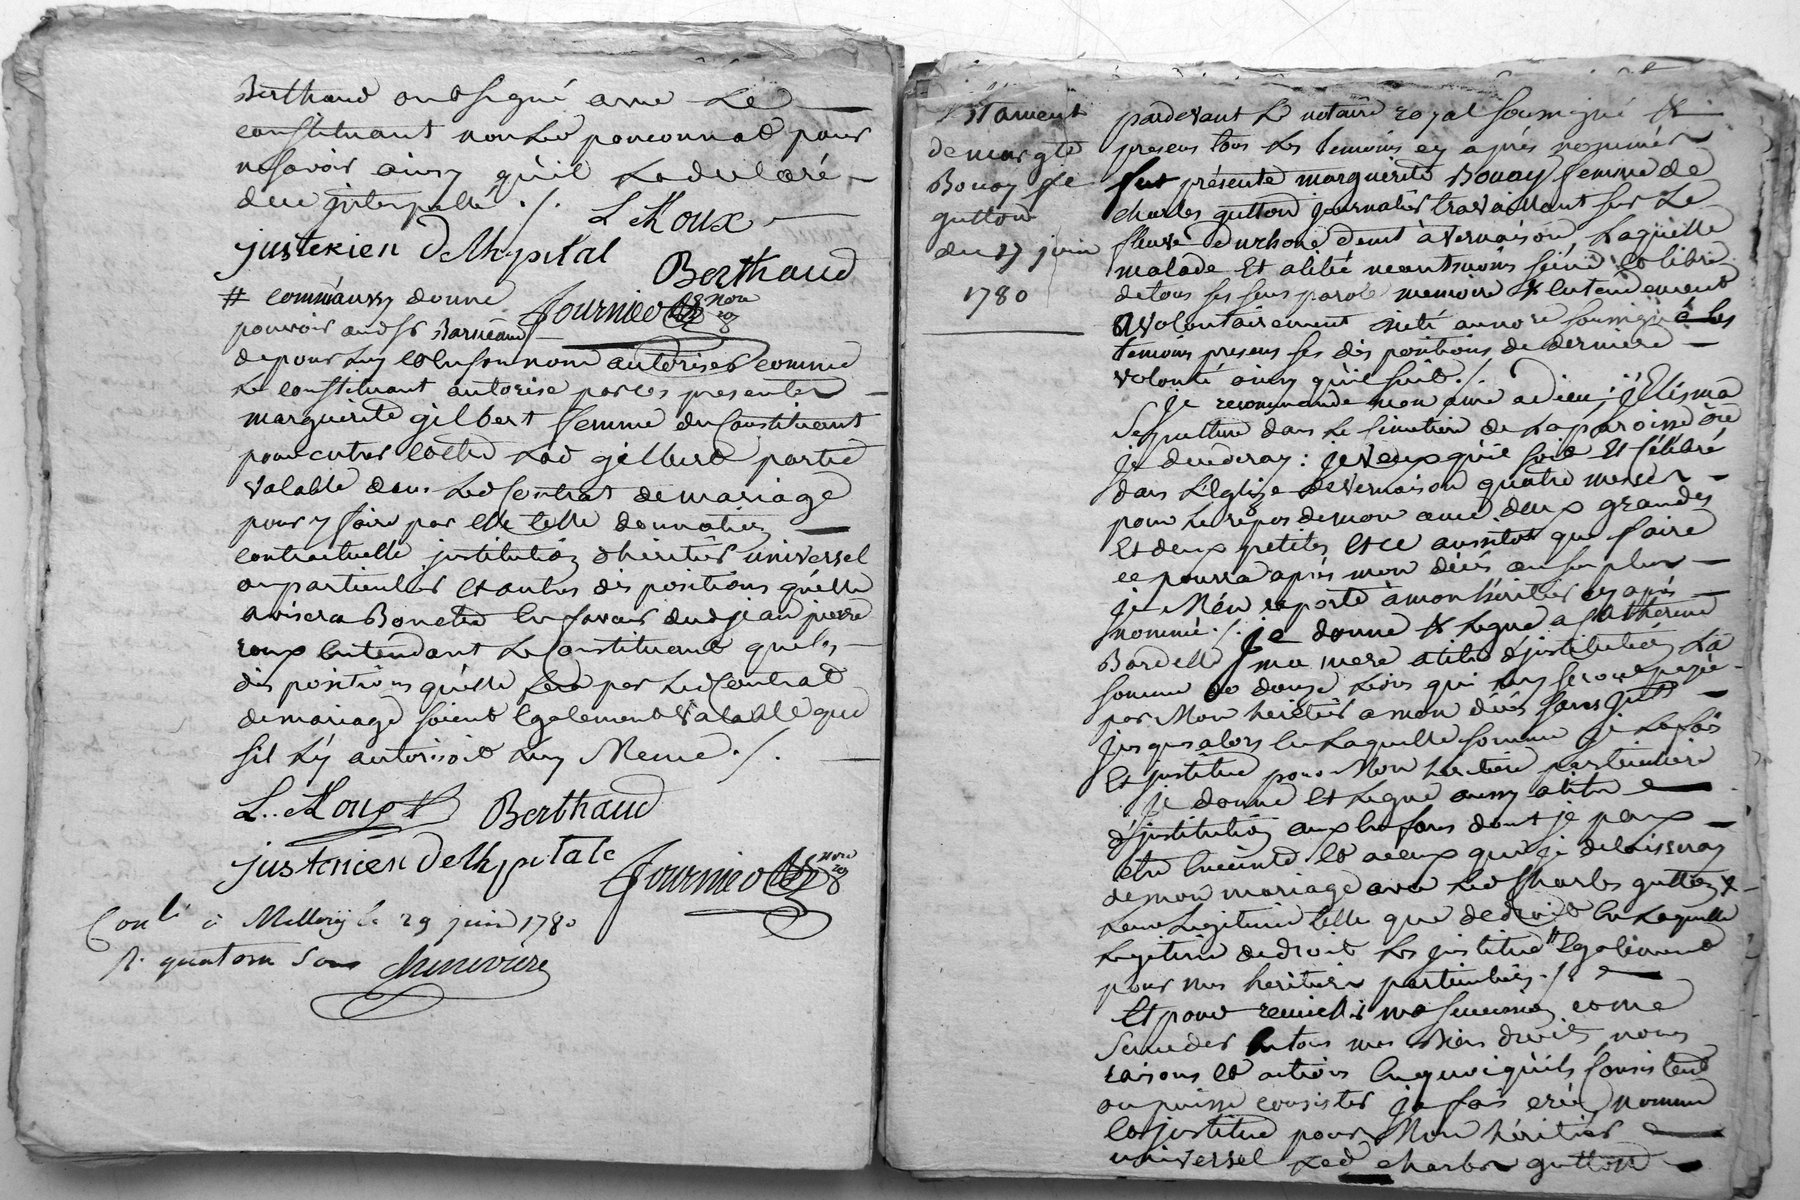 Berthaud ont signé avec Le
constituant non Led ponconnat pour
ne savoir ainsy qu'il La declaré
de ce interpellé ./.
L Roux
justenien Delhopital
Berthaud
Fournier Nore
# comme aussy donne
pouvoir audsr Barneaud
de pour luy et en son nom autoriser comme
Le constituant autorise par ces presentes
marguerite gilbert femme du Constituant
pour entrer Lad gilbert partie
valable dans Led Contrat de mariage
pour y faire par elle telle donnation
contractuelle institution d'heritier universel
ou particulier et autres dispositions qu'elle
avisera Bon etre en faveur dud jean pierre
roux entendant Le Constituant que les
dispositions qu'elle fera par Led Contrat
de mariage soient également valable que
s'il L'y autorisoit luy Meme ./.
L. Roux
Berthaud
justenien Delhopitale
Fournier Nore
Conlé à Millery le 29 juin 1780
R. quatorze sous
Chineviere
Testament
de margte
Bouay fe
gutton
du 17 juin
1780
pardevant Le notaire royal soussigné &
presens tous Les temoins cy après nommés
fut présente marguerite Bouay femme de
charles gutton journalier travaillant sur Le
fleuve du rhone demt à vernaison Laquelle
malade Et alitée neantmoins seine et libre
de tous ses sens parole memoire & entendement
a volontairement dicté au nore soussigné & les
temoins presens ses dispositions de derniere
volonté ainsy qu'il suit ./.
Je recommande mon ame a dieu ; j'Elis ma
Sepulture dans Le cimetiere de La paroisse où
je decederay : je veux qu'il soit Et célébré
dans L'Eglise de vernaison quatre messes
pour Le repos de mon ame deux grandes
Et deux petites et ce aussitot que faire
ce pourra après mon décés au surplus
je M'en raporte à mon héritier cy après
nommé ./. Je donne & Legue a Catherine
Bardelle ma mere a titre d'jnstitution La
somme de douze Livres qui luy sera payée
par Mon heritier a mon décés sans jnst
jusques alors en Laquelle somme je La fais
Et jnstitue pour Mon heritiere particuliere
Je donne et Legue aussy a titre
d'jnstitution aux enfans dont je peux
etre Enceinte et a ceux que je delaisseray
de mon mariage avec Led Charles gutton &
Leur Legitime telle que de droit en Laquelle
Legitime de droit Les jnstitue " Egalement
pour mes heritiers particuliers ./.
Et pour recueillir ma succession come
succeder en tous mes Biens droits noms
raisons et actions en quoi qu'ils Consistent
ou puisse consister je fais crée nomme
et jnstitue pour Mon héritier
universel Led charles gutton